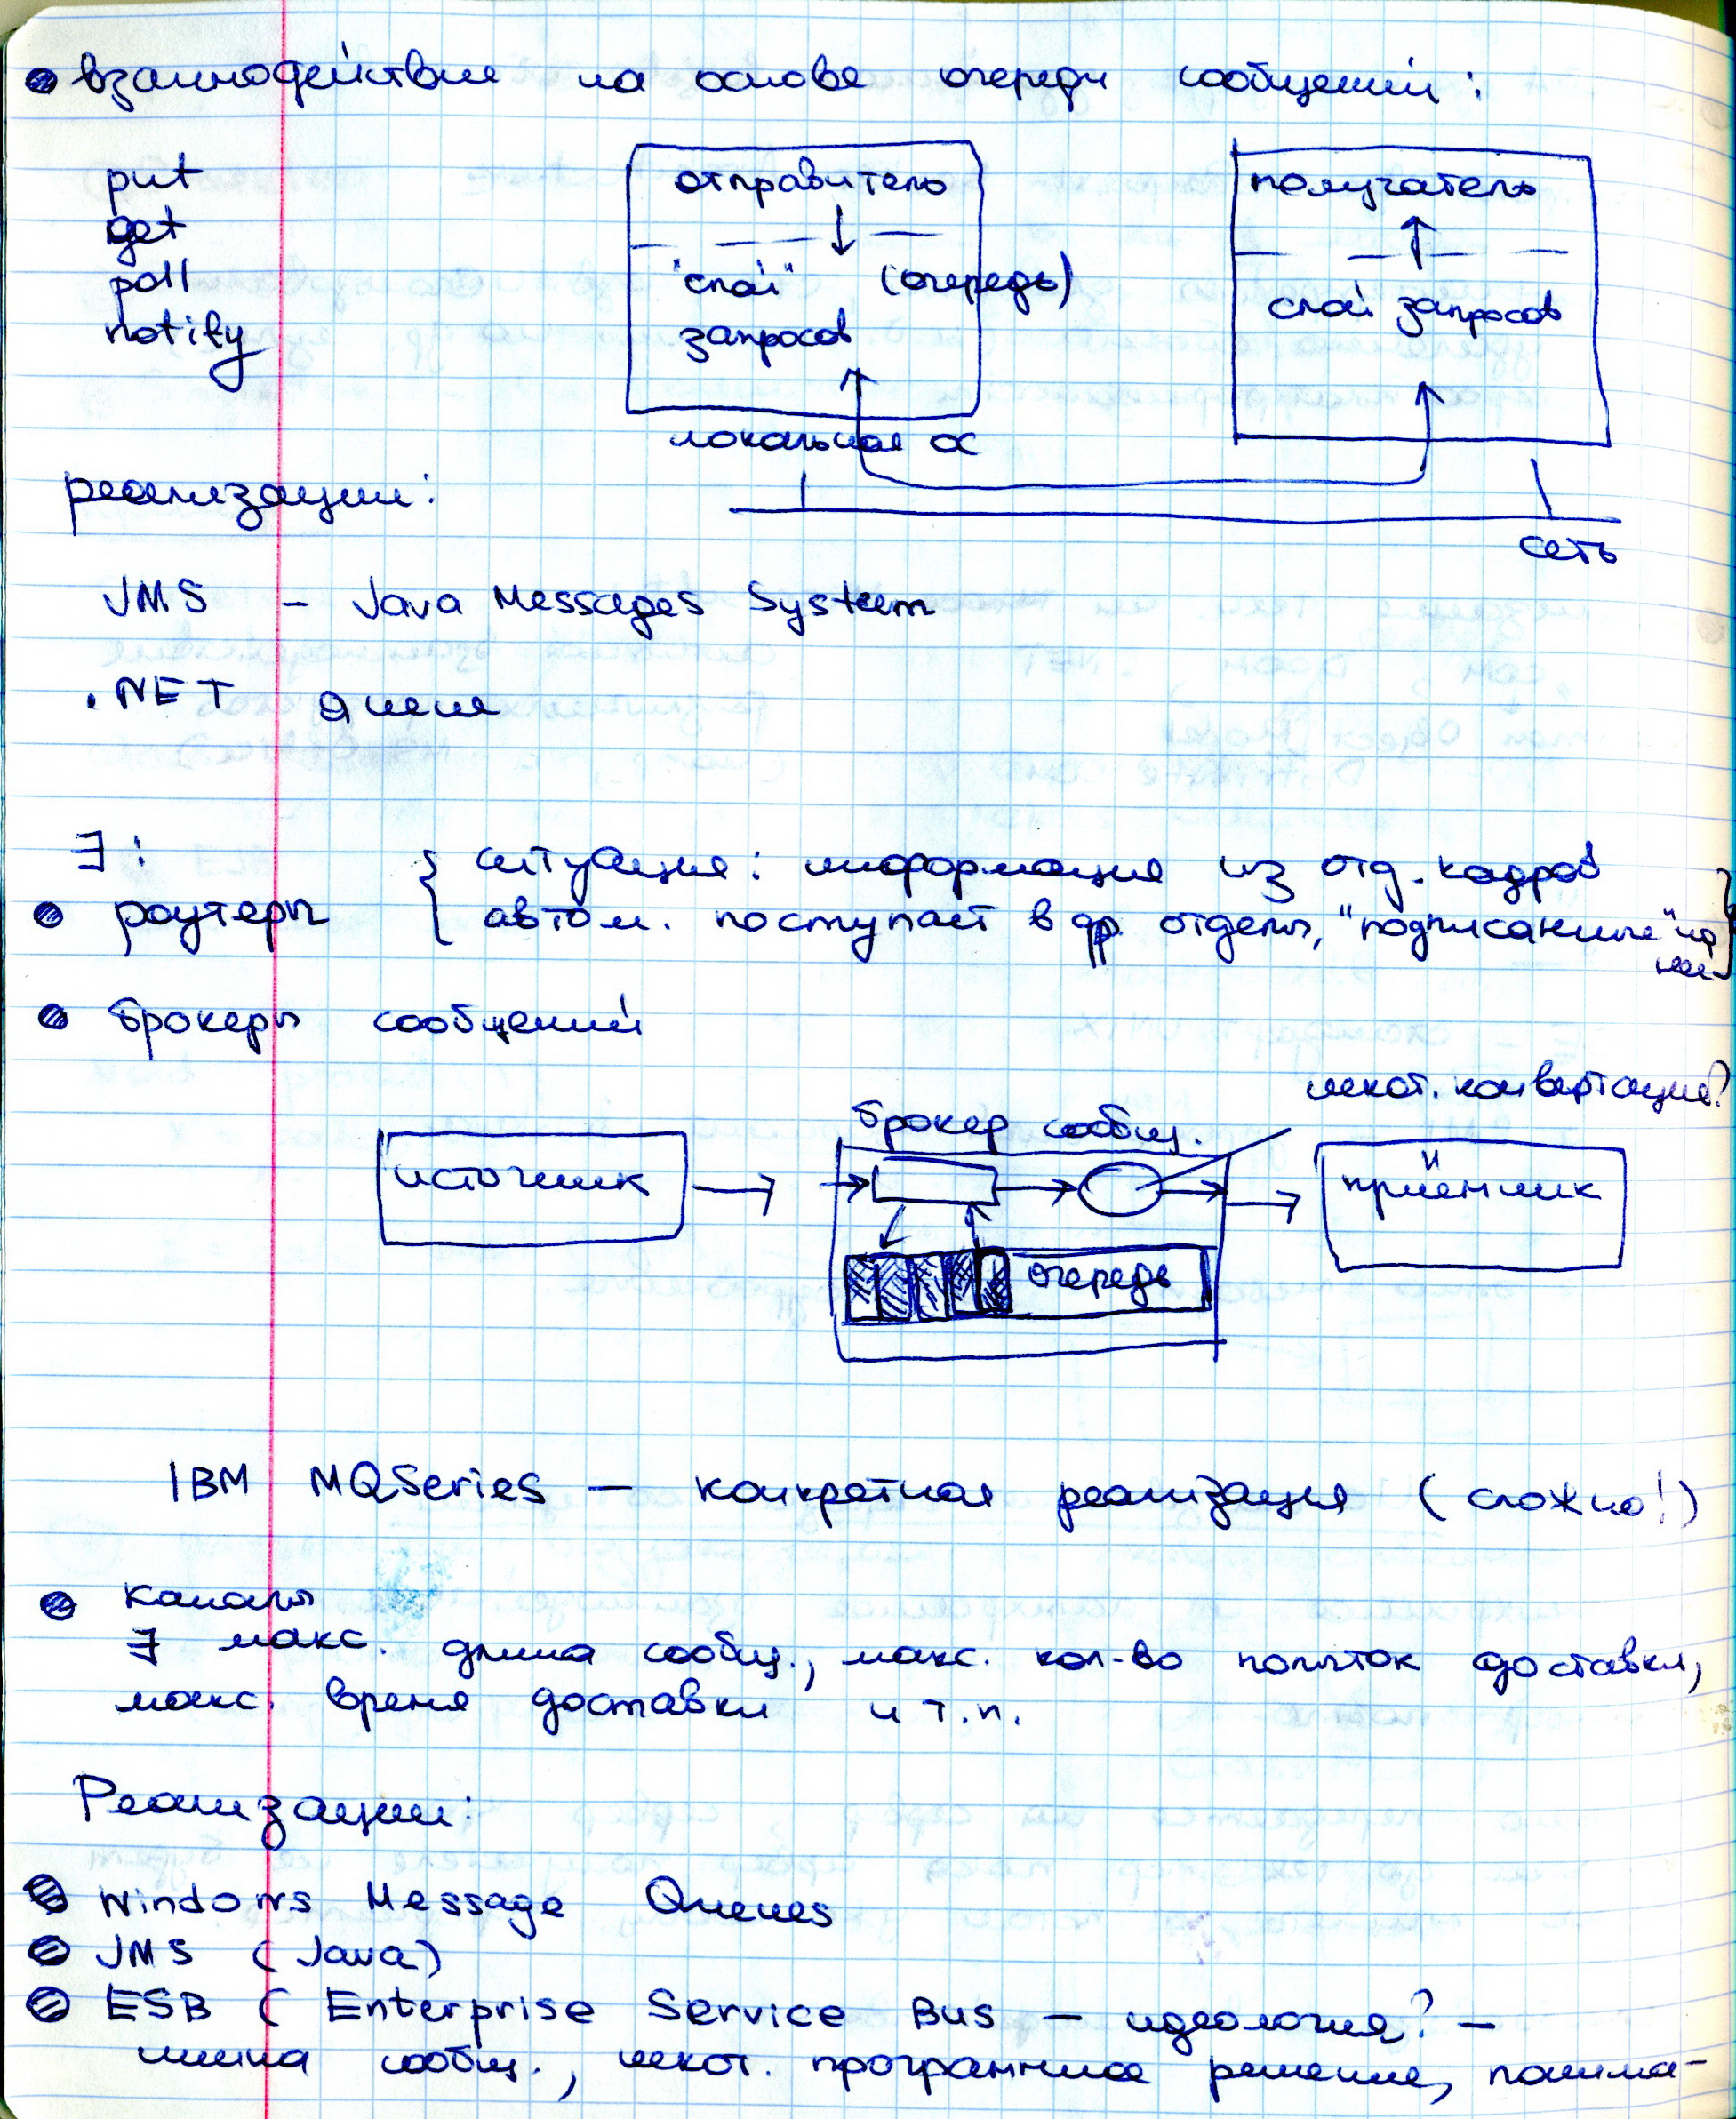 взаимодействие на основе очереди сообщений:
put
get
poll
notify
отправитель
"слой" (очередь)
запросов
локальная ОС
получатель
слой запросов
сеть
реализации:
JMS - Java Messages System
.NET queue
∃:
роутеры
{ ситуация: информация из отд. кадров
автом. поступает в др. отделы, "подписанные" на
нее }
брокеры сообщений
некот. конвертация?
брокер сообщ.
источник
приемник
очередь
IBM MQSeries — конкретная реализация (сложно!)
каналы
∃ макс. длина сообщ., макс. кол-во попыток доставки,
макс. время доставки и т.п.
Реализации:
Windows Message Queues
JMS (Java)
ESB (Enterprise Service Bus — идеология? —
шина сообщ., некот. программное решение, понима-